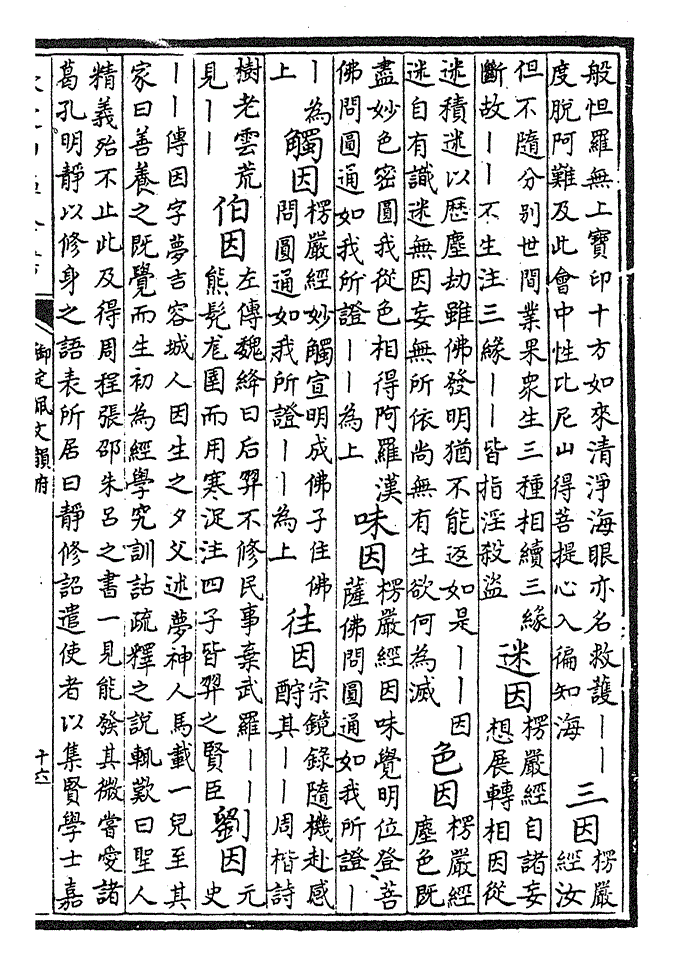 般怛羅無上寶印十方如來清淨海眼亦名救護丨丨
度脫阿難及此會中性比尼山得菩提心入徧知海
三因
楞嚴
經汝
但不隨分別世間業果衆生三種相續三緣
斷故丨丨不生注三緣丨丨皆指淫殺盜
迷因
楞嚴經自諸妄
想展轉相因從
迷積迷以歷塵劫雖佛發明猶不能返如是丨丨因
迷自有識迷無因妄無所依尚無有生欲何為滅
色因
楞嚴經
塵色既
盡妙色密圓我從色相得阿羅漢
佛問圓通如我所證丨丨為上
味因
楞嚴經因味覺明位登菩
薩佛問圓通如我所證丨
丨為
上
觸因
楞嚴經妙觸宣明成佛子住佛
問圓通如我所證丨丨為上
往因
宗鏡錄隨機赴感
酧其丨丨周楷詩
樹老雲荒
見丨丨
伯因
左傳魏絳曰后羿不修民事棄武羅丨丨
熊髠尨圉而用寒浞注四子皆羿之賢臣
劉因
元
史
丨丨傳因字夢吉容城人因生之夕父述夢神人馬載一兒至其
家曰善養之既覺而生初為經學究訓詁疏釋之說輒歎曰聖人
精義殆不止此及得周程張邵朱呂之書一見能發其微嘗愛諸
葛孔明靜以修身之語表所居曰靜修詔遣使者以集賢學士嘉
御定佩文韻府
十六